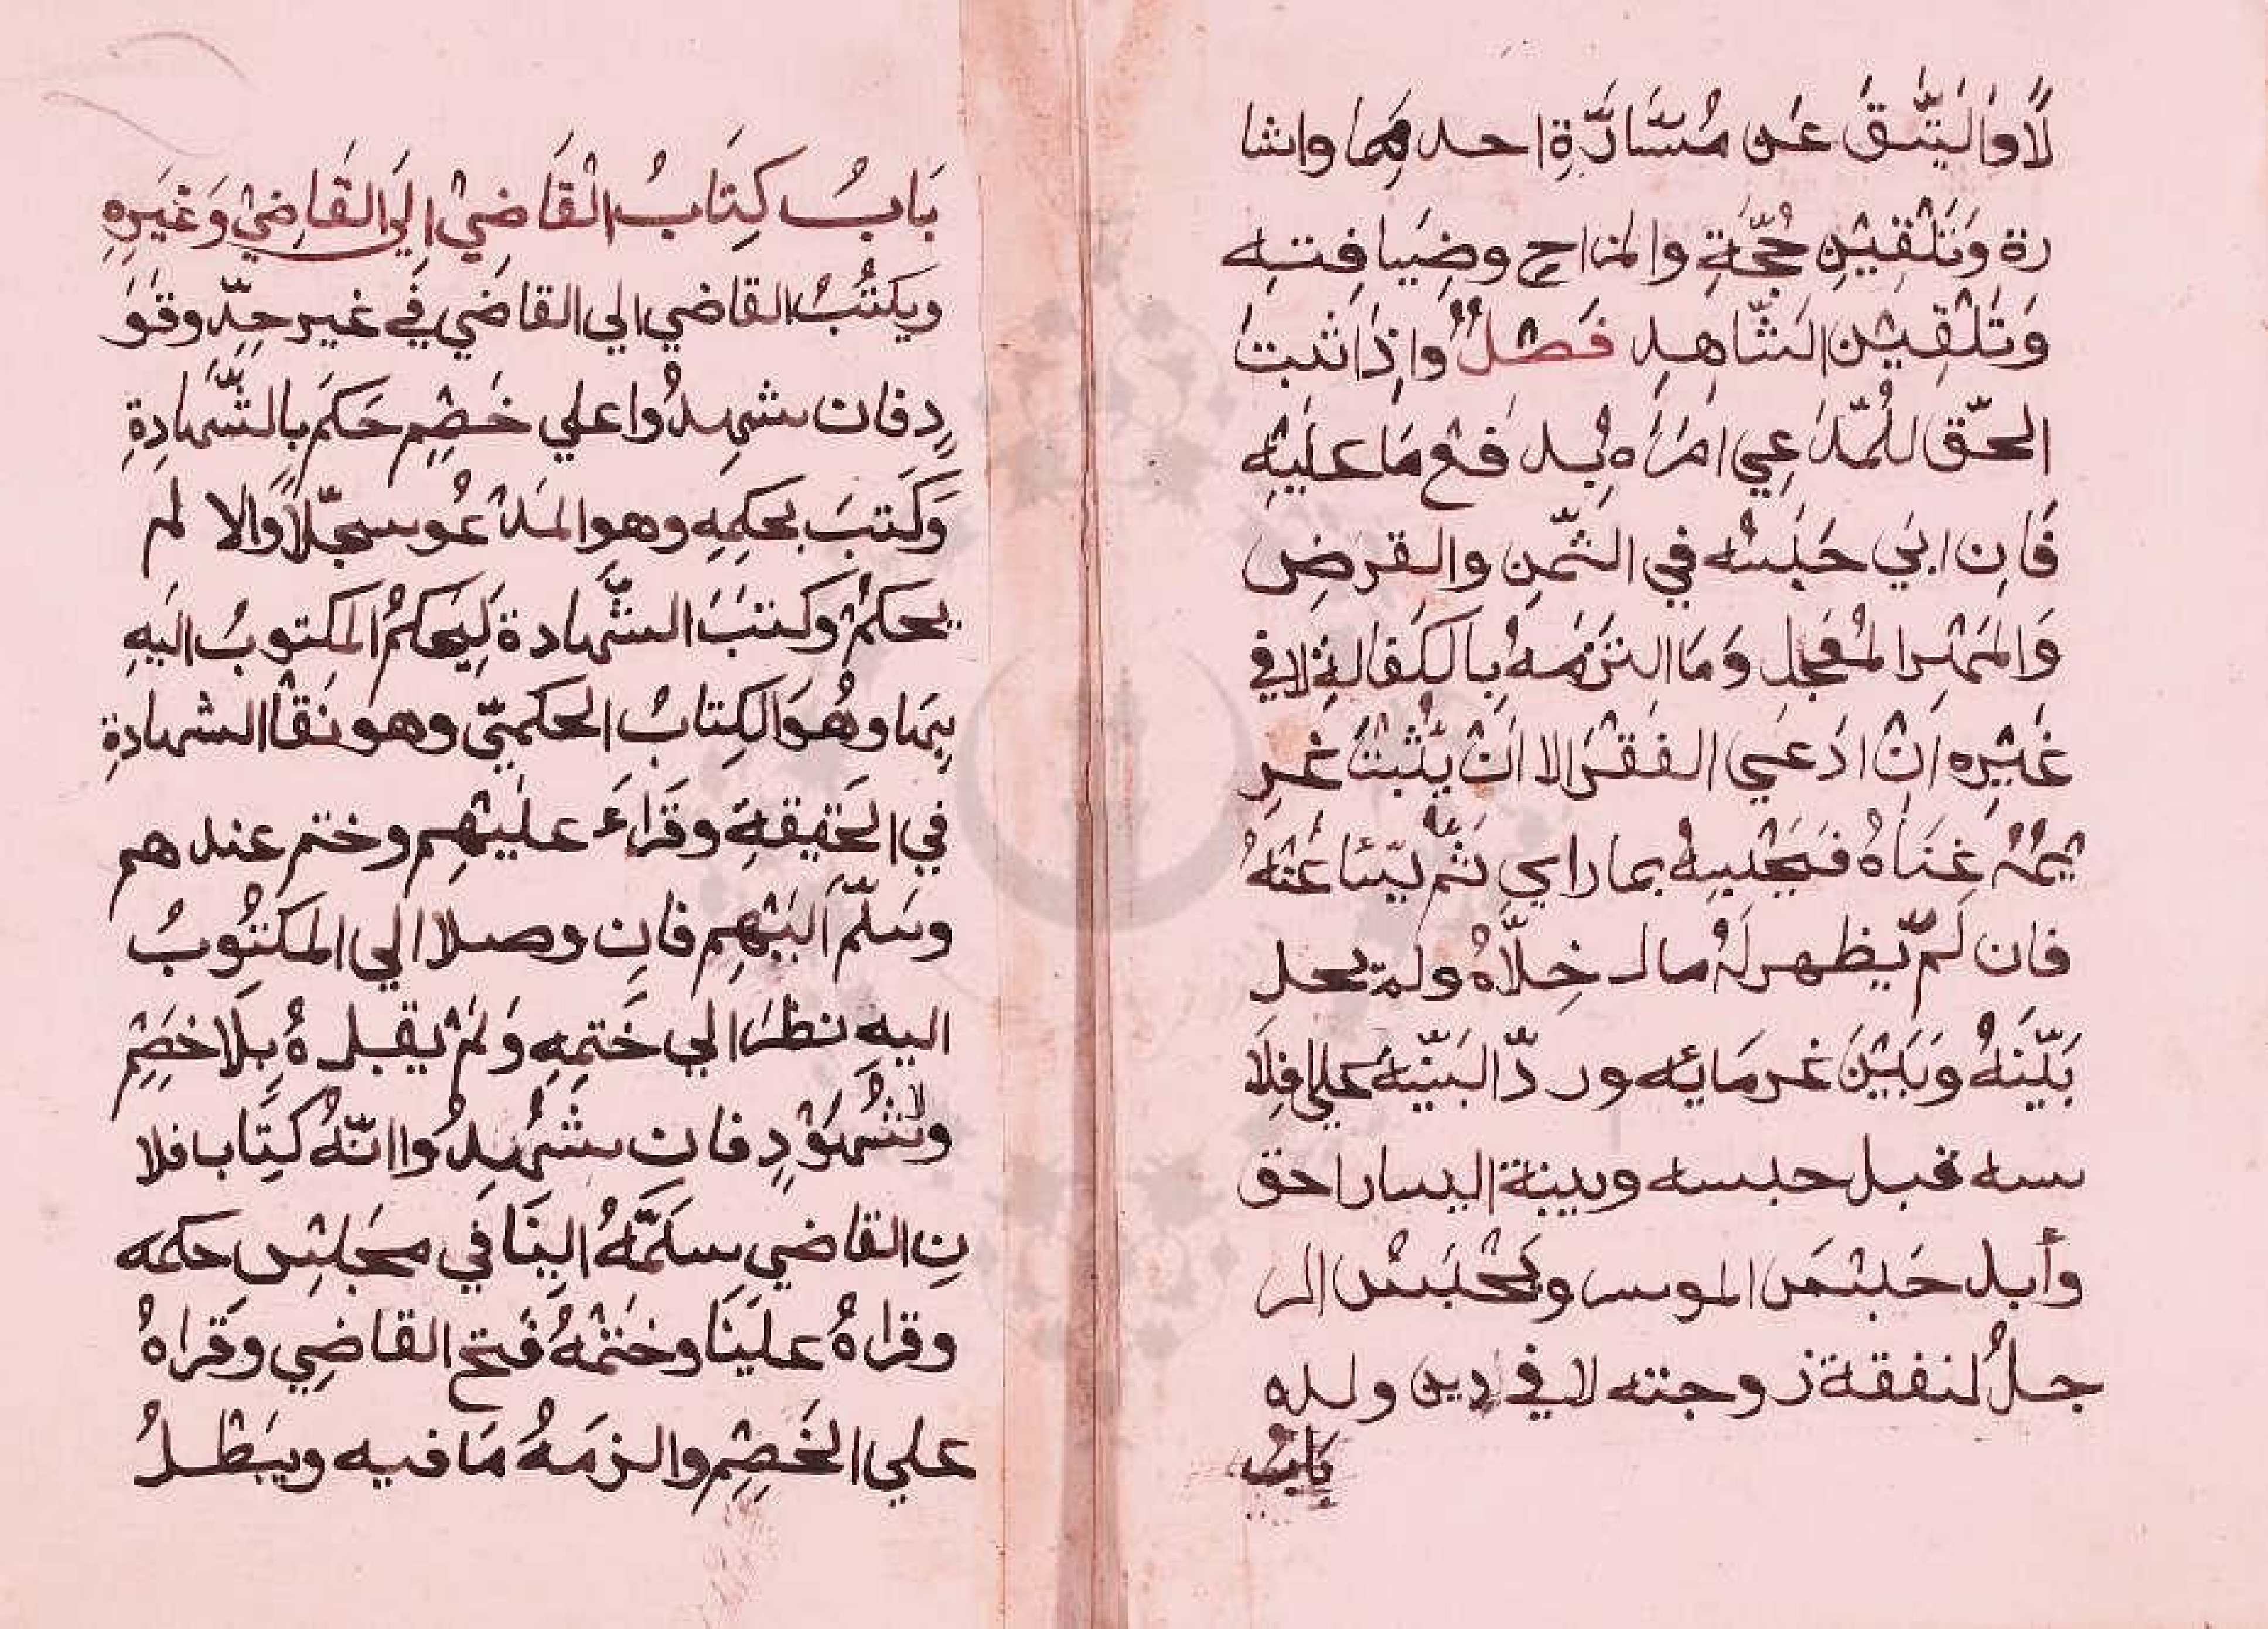 لًا واليَتَّقَ عَن مُسَارَّةِ احدهِما واشا
رة وَتَلْقِيْنِ حُجَّةٍ والمزاح وضِيَافتِه
وَتَلْقِيْن الشّاهِدِ فَصْلٌ وَاِذَا ثبتَ
الحقّ للمُدّعِي امَرَهُ بِدفعْ مَا عليْهِ
فَاِن ابيَ حَبَسْه في الثّمنِ والقرضِ
وَالمَهْرِ المُعَجلِ وَمَا التزَمَهُ بِالكفَالةِ لا في
غَيْرِه اِنْ ادَعَي الفَقْرَ الا اَنْ يُثْبتَ غرِ
يْمُهُ غِنَاهُ فَيَحْبِسهُ بما راي ثُمّ يسْئا عَنْهُ
فان لَمْ يَظهر لَهُ مال خلّاهُ ولم يحل
بَيْنَهُ وَبَيْنَ غرمَائِه وردّ البَيِّنَةَ علي افِلَا
سه قبل حبسه وبينة اليسار احق
وأبد حَبْسَ الموسر ويُحْبَسُ الر
جلُ لنفقة زوجته لا في دين ولده
بابُ
بَابُ كِتَابُ القَاضِيْ اِلَي القَاضِيْ وَغَيرِهِ
ويكتُبُ القاضي الي القاضي في غير حدّ وقوَ
دٍ فان شهِدُوا علي خَصْمٍ حَكَمَ بالشّهادةِ
وَكَتبَ بحكمِهِ وهو المَدْعُو سجّلاً والا لم
يحكمْ وكتبَ الشّهادة لِيَحكمُ المكتوبُ اليَهِ
بِهَا وهُوَ الكِتابُ الحكميّ وهو نَقْا الشهادةِ
في الحَقيقةِ وقَرَاءَ عليْهِم وختم عندهم
وسَلّمَ اليْهِم فانِ وصلا الي المَكتُوبُ
اليهِ نظَرَ الي خَتمِهِ وَلمْ يقبلهُ بِلَا خَصْمٍ
وَشُهُوْدٍ فان شَهِدُوا انّهُ كِتَاب فلا
نِ القاضي سلّمَهُ اليْنَا في مَجْلِسِ حكمه
وقراهُ عليَنَا وخَتَمْهُ فَتح القاضِي وَقراهُ
علي الخَصْمِ والزمَهُ مَا فيه ويَبْطلُ